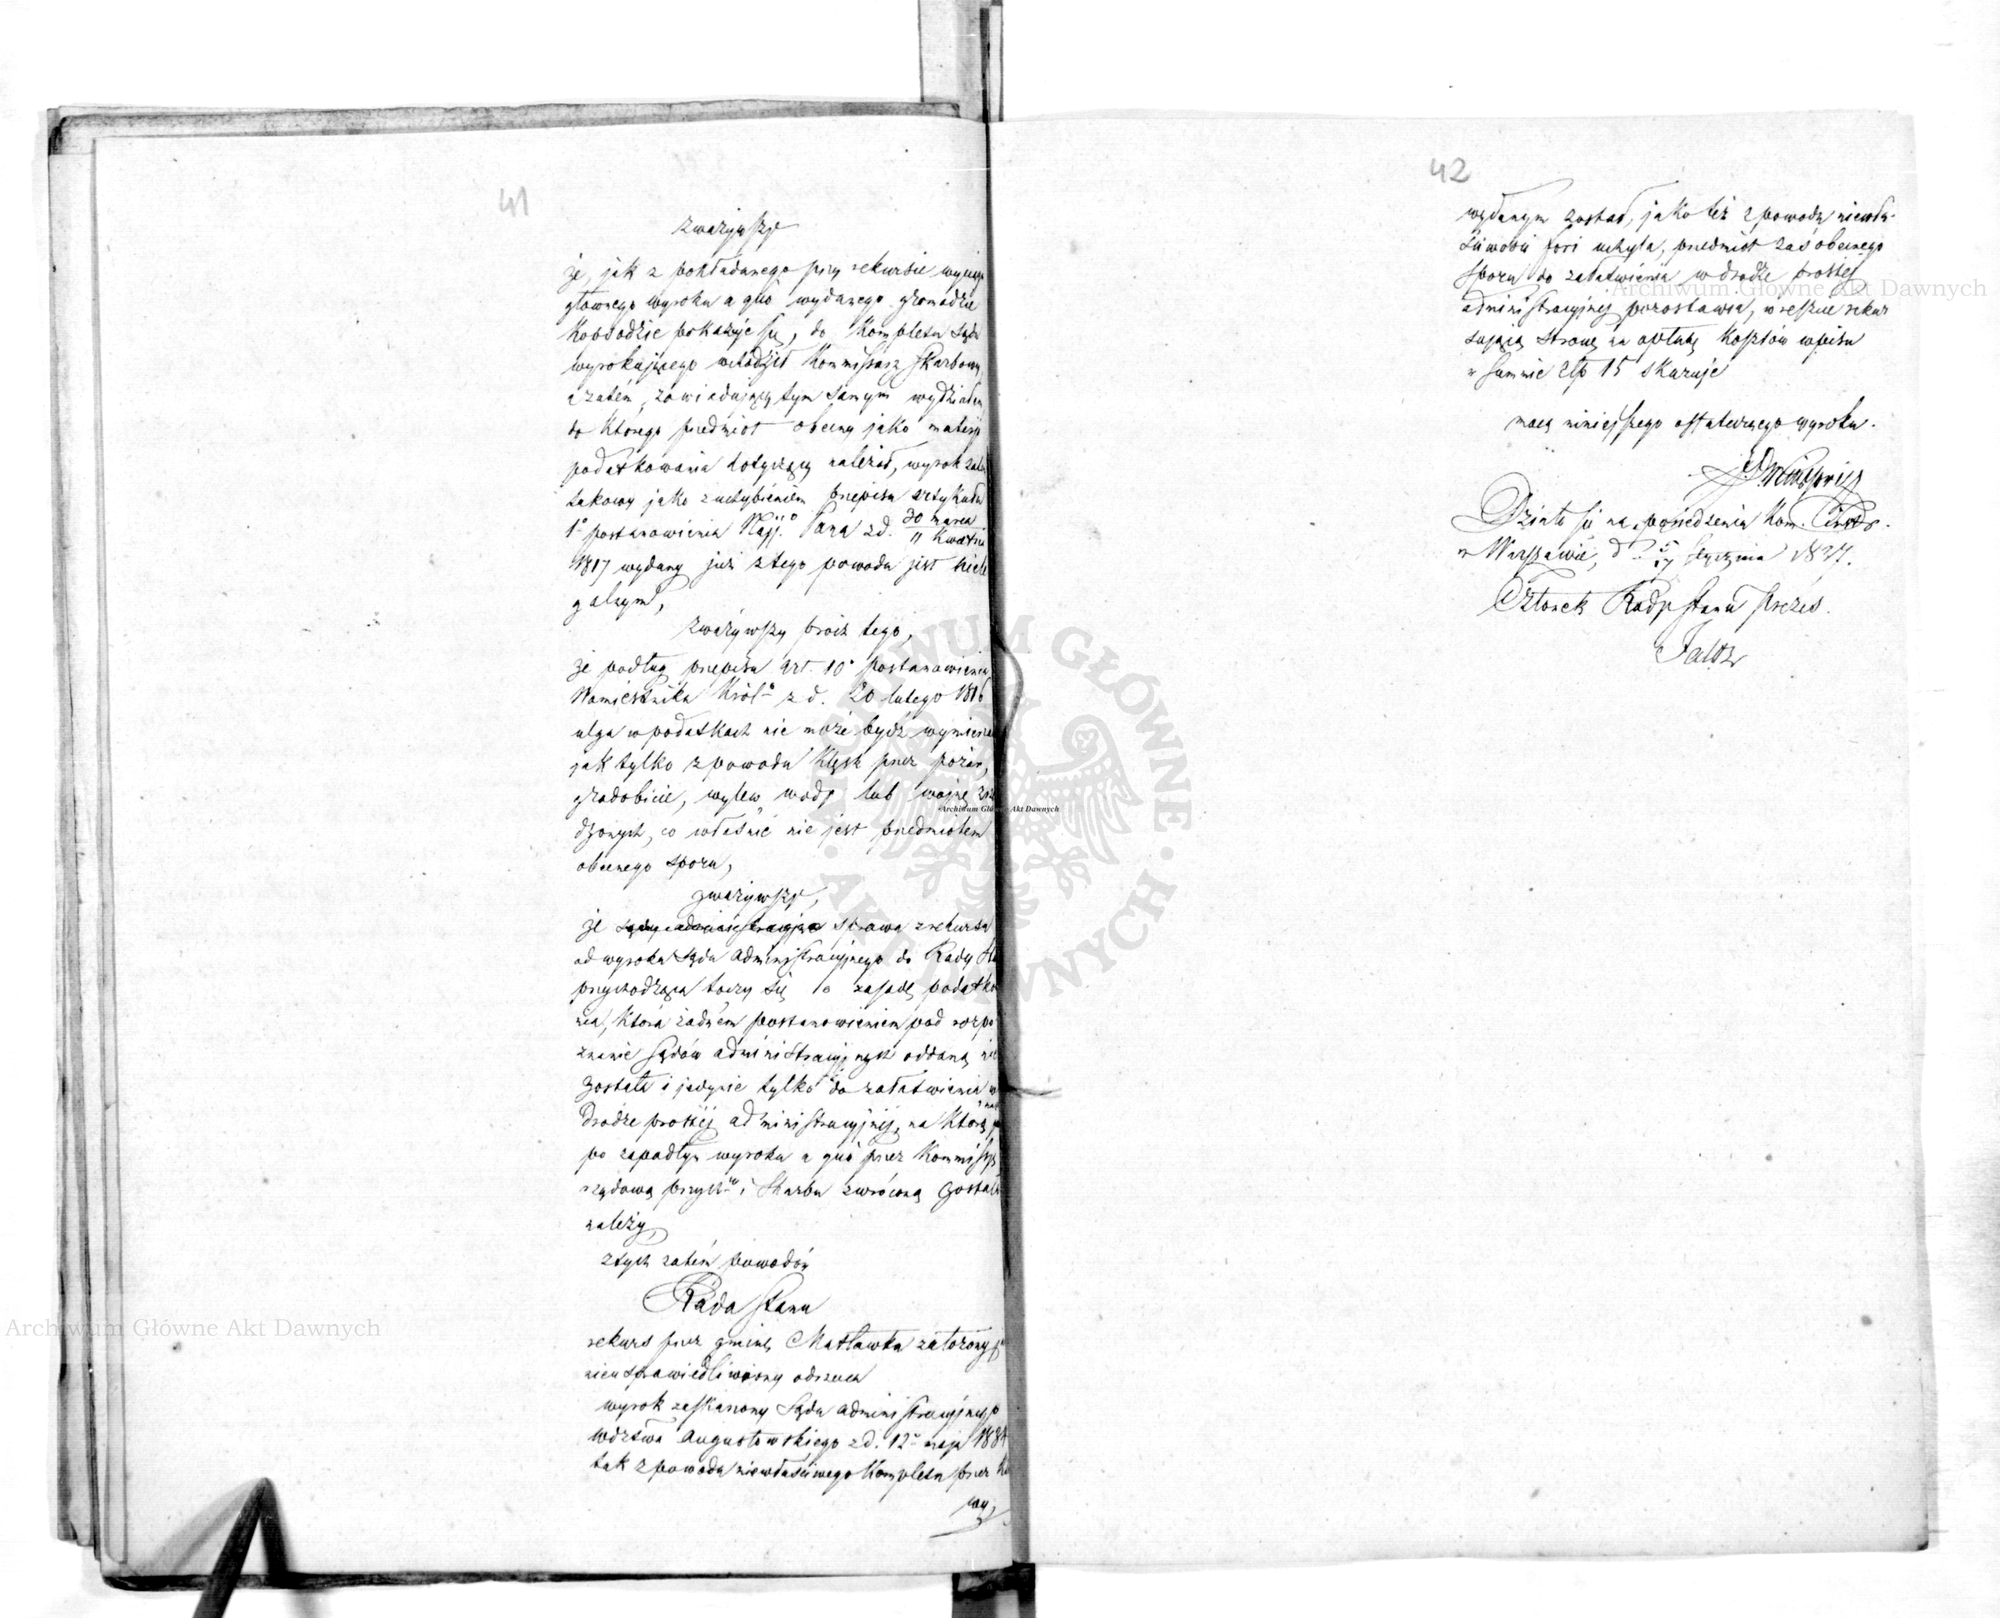 41
zważywszy
że, jak z pokładanego przy rekursie wyciągu
głównego wyroku a quo wydanego gromadzie
pokazuje się, do Kompletu Sądu
wyrokującego wchodził Kommissarz Skarbowy,
a zatém, zawiadujący tym samym wydziałem
do którego przedmiot obecny jako materyi
podatkowania dotyczący należał, wyrok zatém
takowy jako z uchybieniem przepisu artykułu
1o postanowienia Najj.o Pana z d. 30 marca / 11 Kwietnia
1817 wydany już z tego powodu jest niele
galnym,
zważywszy prócz tego,
że podług przepisu art. 10o postanowienia
Namiestnika Król.o z d. 20 lutego 1816
ulga w podatkach nie może bydź wymierzana
jak tylko z powodu klęsk przez pożar,
gradobicie, wylew wody lub wojnę zrzą
dzonych, co właśnie nie jest przedmiotem
obecnego sporu,
zważywszy,
że sprawa z rekursu
od wyroku Sądu Administracyjnego do Rady Stanu
przychodząca toczy się o zasadę podatko
wa, która żadném postanowieniem pod rozpo
znanie Sądów administracyjnych oddaną nie
została i jedynie tylko do załatwienia w
drodze prostéj administracyjnéj, na którą
po zapadłym wyroku a quo przez Kommissyą
rządową przych.w i Skarbu zwróconą została
należy,
z tych zatém powodów
Rada Stanu
rekurs przez gminę Matławka założony
nieusprawiedliwiony odrzuca
wyrok zaskarżony Sądu administracyjnego
wdztwa Augustowskiego z d. 12o maja 1834
tak z powodu niewłaściwego Kompletu przez
wy,
42
wydanym został, jako też z powodu niewła-
ściwości fori uchyla, przedmiot zaś obecnego
sporu do załatwienia w drodze prostéj
administracyjnéj pozostawia, wreszcie rekur
sującą stronę na opłatę kosztów wpisu
w summie Złp 15 skazuje
mocą niniejszego ostatecznego wyroku.
Działo się na posiedzeniu Kom.
w Warszawie, d. 5/17 Stycznia 1837.
Członek Rady Stanu Prezes.
Faltz
Archiwum Główne Akt Dawnych
Archiwum Główne Akt Dawnych
Archiwum Główne Akt Dawnych
ARCHIWUM GŁÓWNE AKT DAWNYCH